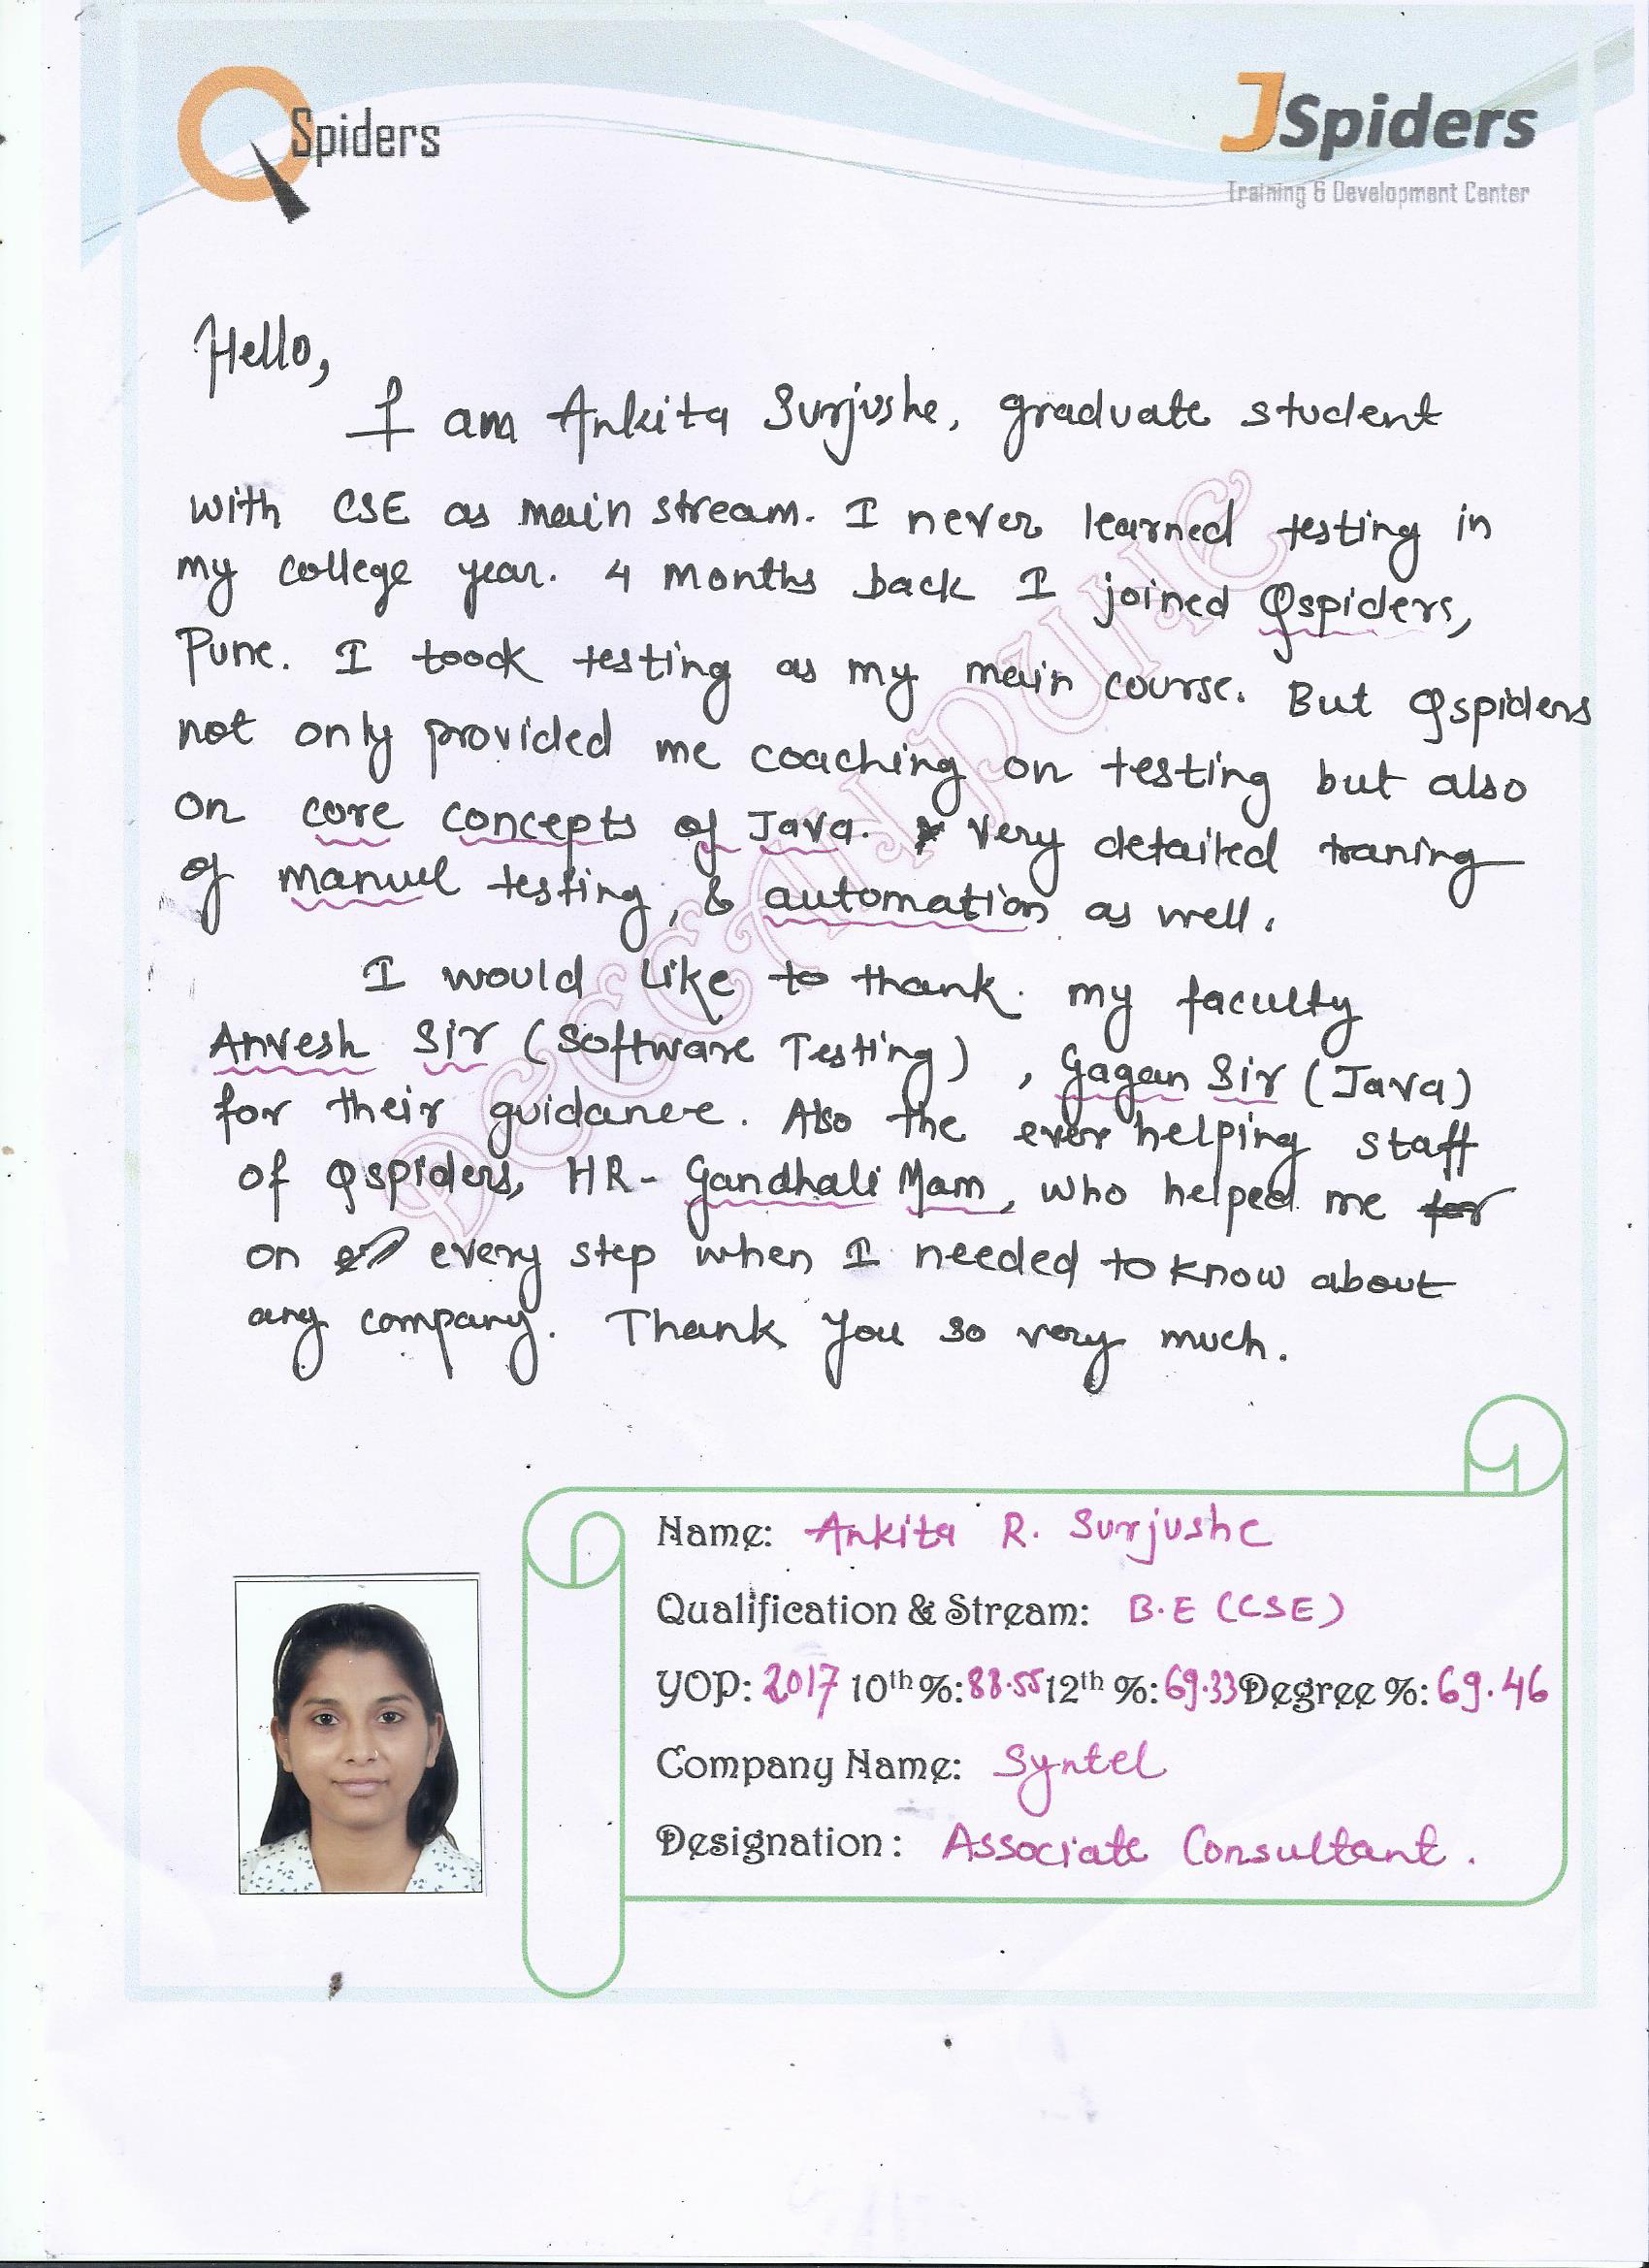 QSpiders
JSpiders
Training & Development Center
Hello,
I am Ankita Surjushe, graduate student
with CSE as main stream. I never learned testing in
my college year. 4 months back I joined Qspiders,
Pune. I toock testing as my main course. But Qspiders
not only provided me coaching on testing but also
on core concepts of Java. Very detailed traning
of manuel testing, & automation as well.
I would like to thank my faculty
Anvesh Sir (Software Testing), Gagan Sir (Java)
for their guidance. Also the ever helping staff
of Qspiders, HR- Gandhali Mam, who helped me for
on every step when I needed to know about
any company. Thank you so very much.
DECCAN PUNE
Name: Ankita R. Surjushe
Qualification & Stream: B.E (CSE)
YOP: 2017 10th %: 88.55 12th %: 69.33 Degree %: 69.46
Company Name: Syntel
Designation: Associate Consultant.